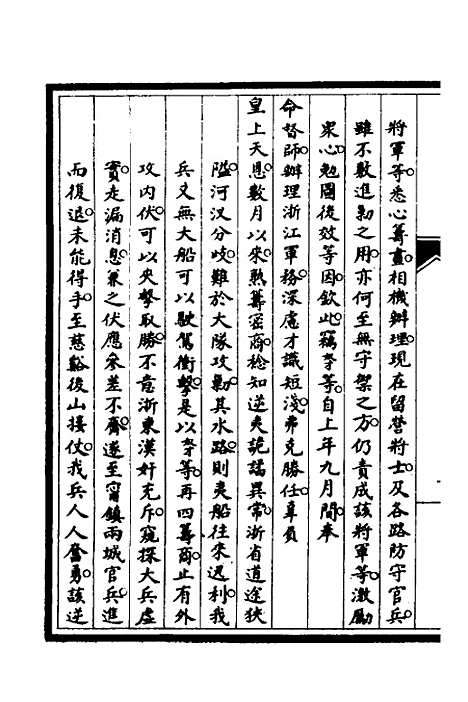 將軍等悉心籌畫。相機辦理。現在留營將士。及各路防守官兵。
雖不敷進剿之用。亦何至無守禦之方。仍責成該將軍等。激勵
眾心。勉圖後效等因。欽此。竊奴才等自上年九月間。奉
命督師。辦理浙江軍務。深慮才識短淺。弗克勝任。辜負
皇上天恩。數月以來。熟籌密商。稔知逆夷詭譎異常。浙省道途狹
隘。河汊分歧。難於大隊攻剿。其水路。則夷船往來迅利。我
兵又無大船可以駛駕衝擊。是以奴才等再四籌商。止有外
攻內伏。可以夾擊取勝。不意浙東漢奸充斥。窺探大兵虛
實。走漏消息。兼之伏應參差不齊。遂至甯鎮兩城官兵進
而復退。未能得手。至慈谿後山接仗。我兵人人奮勇。該逆